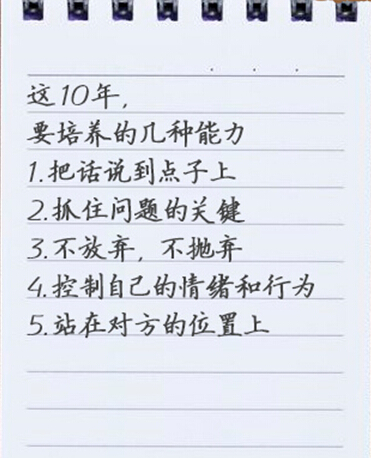 这10年,
要培养的几种能力
1.把话说到点子上
2.抓住问题的关键
3.不放弃，不抛弃
4.控制自己的情绪和行为
5.站在对方的位置上